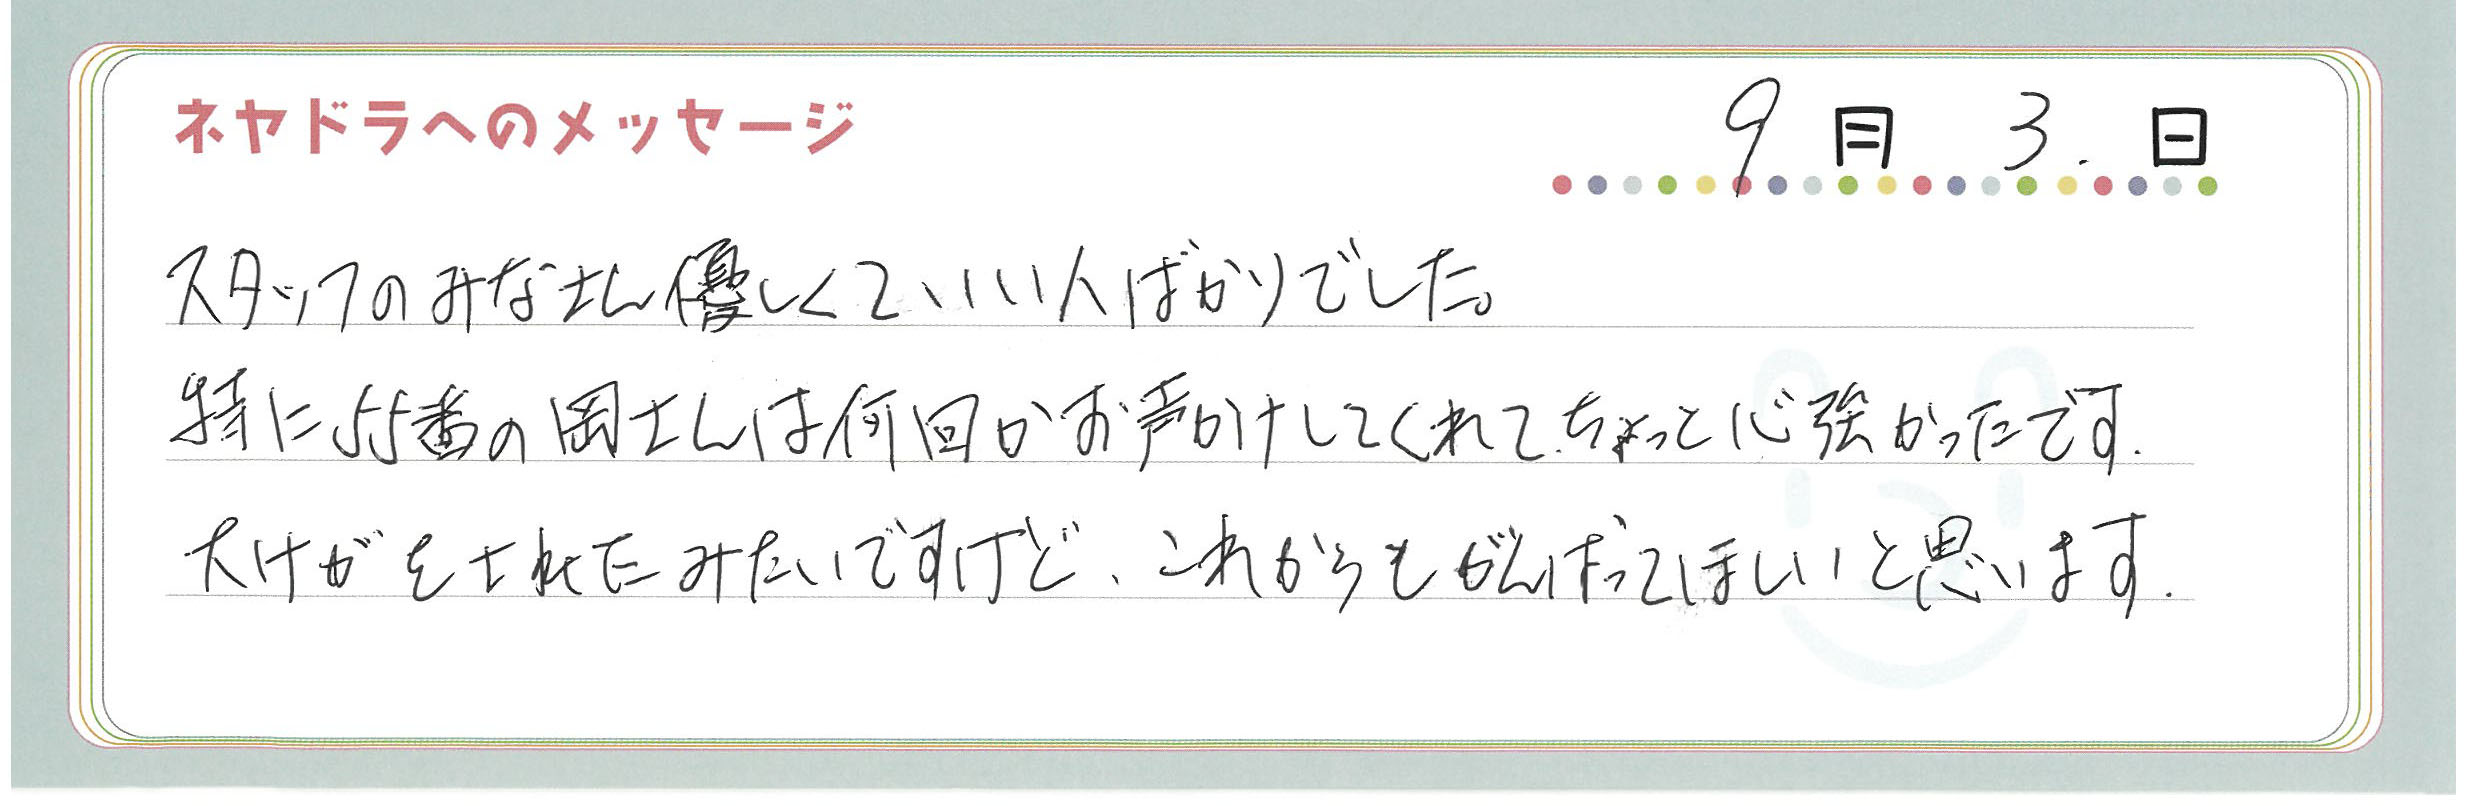 ネヤドラへのメッセージ
9月 3.日
スタッフのみなさん優しくていい人ばかりでした。
特に55番の岡さんは何回かお声かけしてくれて、ちょっと心強かったです.
大けがをされてたみたいですけど、これからもがんばってほしいと思います.